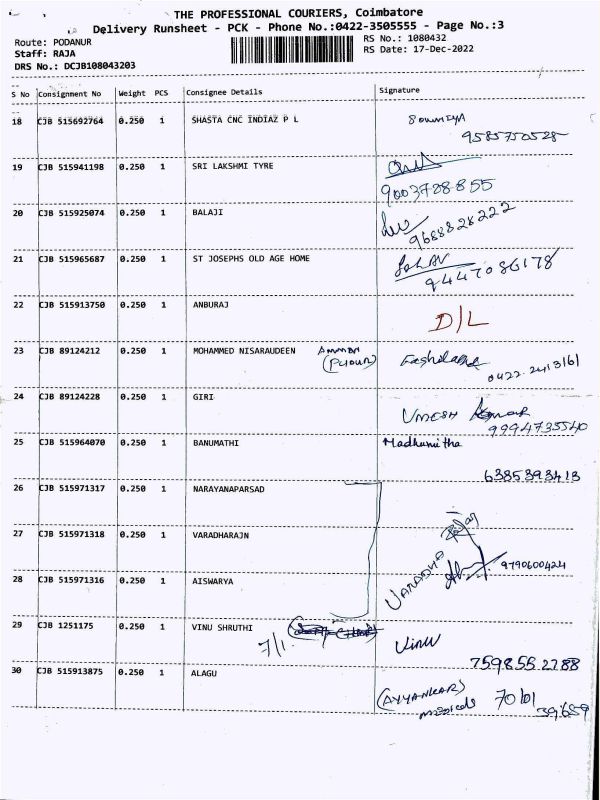 THE PROFESSIONAL COURIERS, Coimbatore
Delivery Runsheet - PCK - Phone No.:0422-3505555 - Page No.:3
Route: PODANUR
Staff: RAJA
DRS No.: DCJB108043203
RS No.: 1080432
RS Date: 17-Dec-2022
S No Consignment No Weight PCS Consignee Details Signature
18 CJB 515692764 0.250 1 SHASTA CNC INDIAZ P L Sowmiya
9585750528
19 CJB 515941198 0.250 1 SRI LAKSHMI TYRE
9003728855
20 CJB 515925074 0.250 1 BALAJI
9688828222
21 CJB 515965687 0.250 1 ST JOSEPHS OLD AGE HOME
9447086178
22 CJB 515913750 0.250 1 ANBURAJ D/L
23 CJB 89124212 0.250 1 MOHAMMED NISARAUDEEN Amman
0422-2413161
24 CJB 89124228 0.250 1 GIRI UMESH Kumar
9994735540
25 CJB 515964070 0.250 1 BANUMATHI Madhumitha
6385393413
26 CJB 515971317 0.250 1 NARAYANAPARSAD
27 CJB 515971318 0.250 1 VARADHARAJN VARADHA Rajan
28 CJB 515971316 0.250 1 AISWARYA 9790600424
29 CJB 1251175 0.250 1 VINU SHRUTHI 7/1 Vinu
7598552788
30 CJB 515913875 0.250 1 ALAGU (AYYANKAR)
medicals